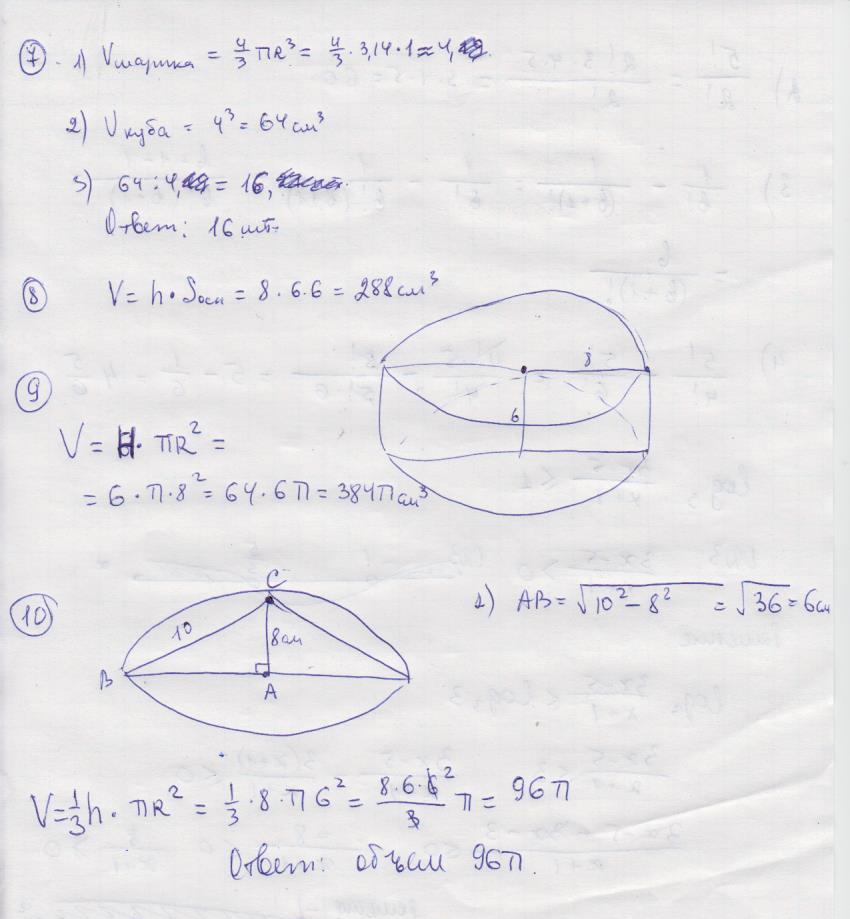 7. 1) Vшарика = 4/3 πR³ = 4/3 · 3,14 · 1 ≈ 4,
2) Vкуба = 4³ = 64 см³
3) 64 : 4, = 16,
Ответ: 16 шт.
8 V = h · Sосн = 8 · 6 · 6 = 288 см³
8
6
9
V = H · πR² =
= 6 · π · 8² = 64 · 6π = 384π см³
10
C
10
8см
B
A
1) AB = √10² – 8² = √36 = 6см
V = 1/3 h · πR² = 1/3 · 8 · π 6² = 8 · 6 · 6²/3 π = 96π
Ответ: объём 96π.